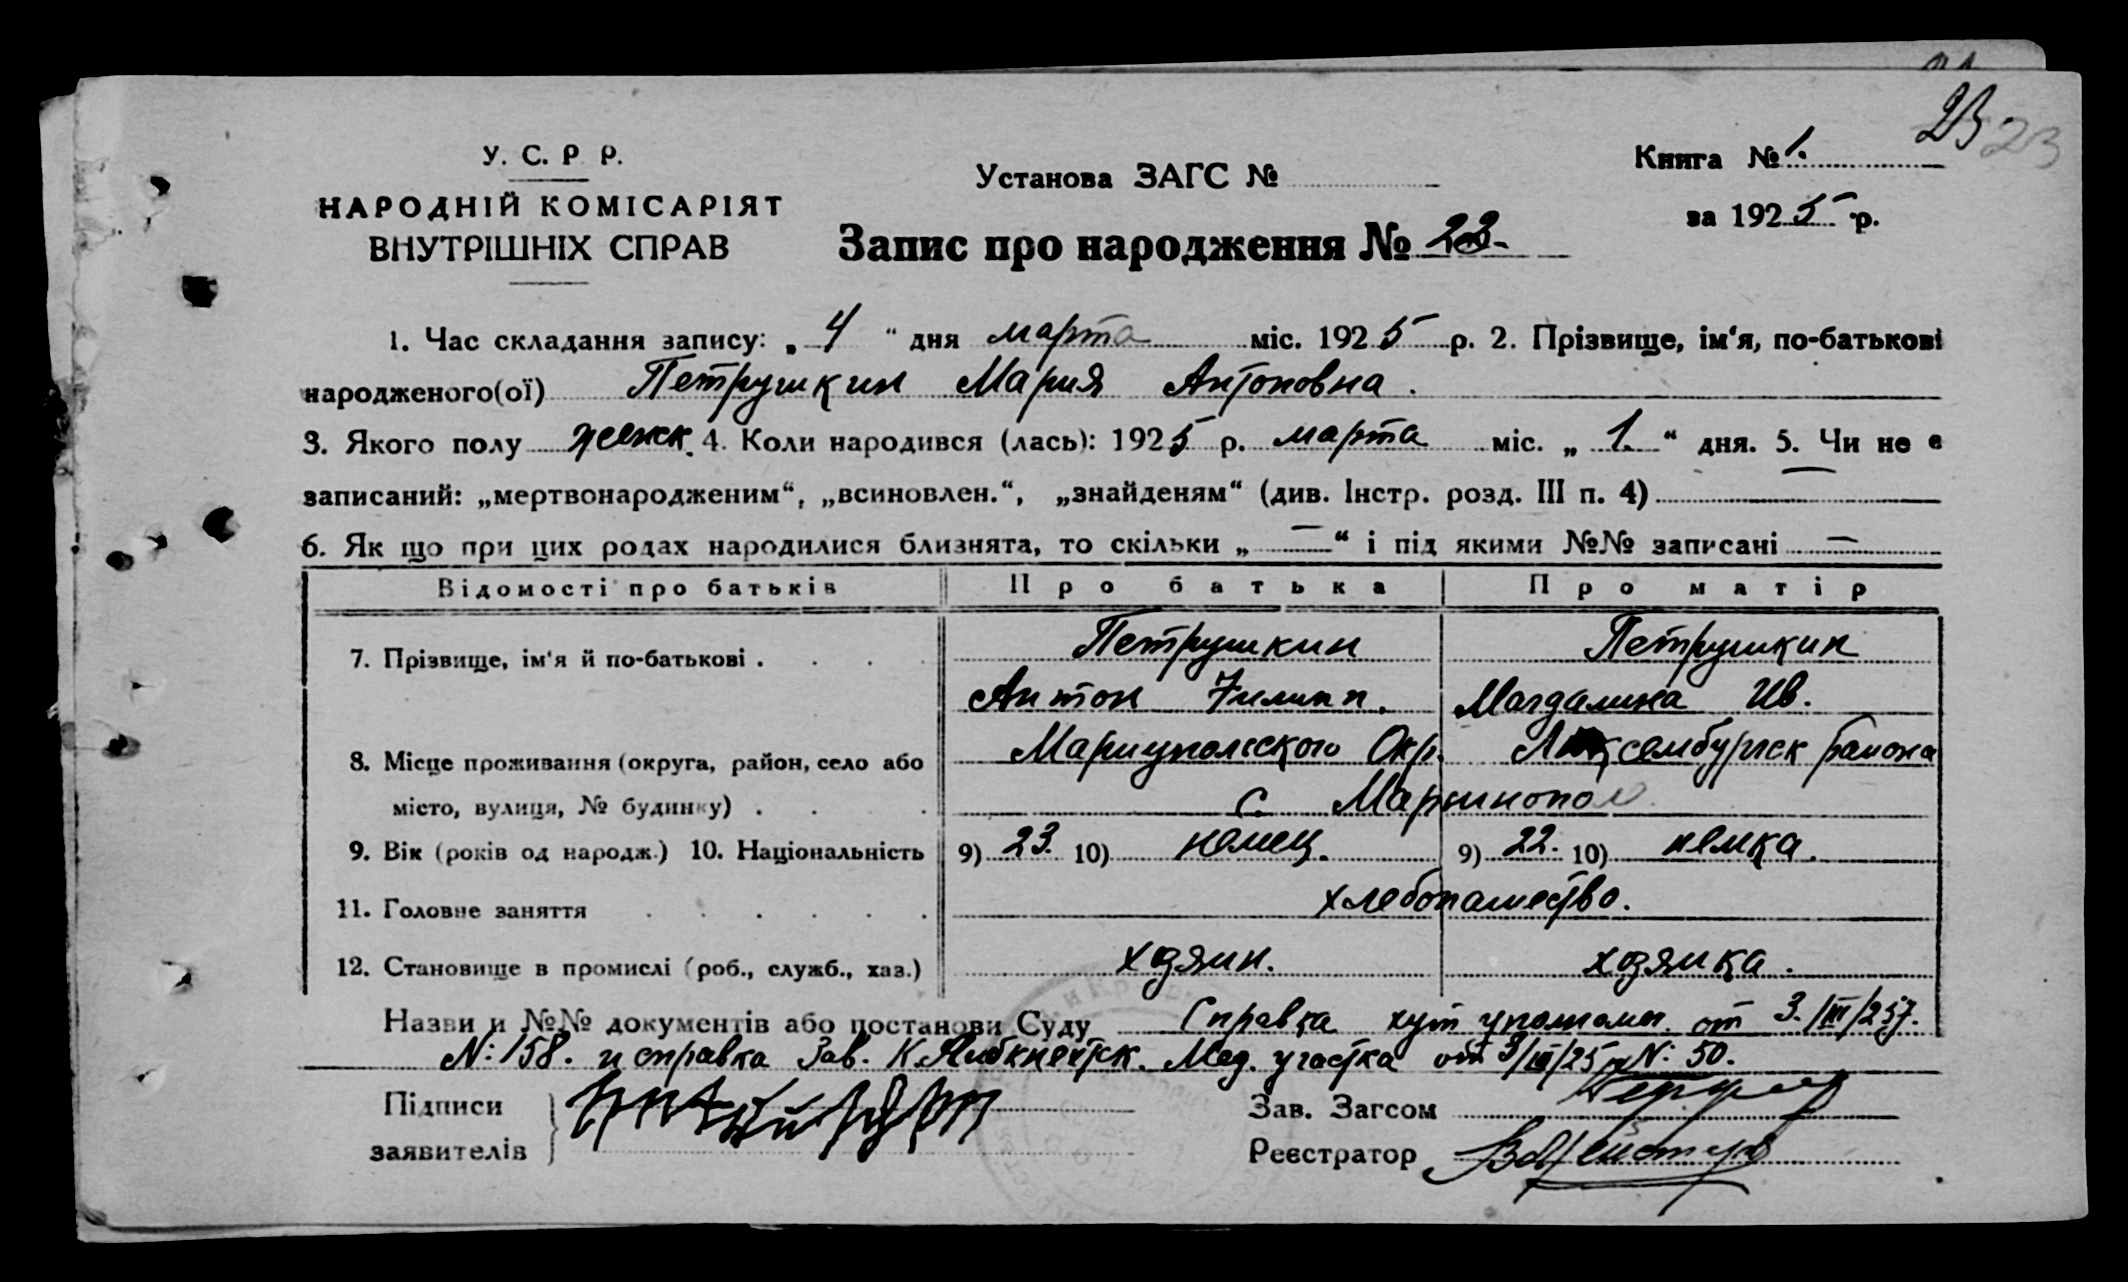 23 23
У. С. Р. Р.
НАРОДНІЙ КОМІСАРІЯТ
ВНУТРІШНІХ СПРАВ
Установа ЗАГС №
Книга № 1.
за 1925 р.
Запис про народження № 23.
1. Час складання запису: „ 4 " дня марта міс. 1925 р. 2. Прізвище, ім'я, по-батькові
народженого(ої) Петрушкин Мария Антоновна.
3. Якого полу женск. 4. Коли народився (лась): 1925 р. марта міс. „ 1. " дня. 5. Чи не є
записаний: „мертвонародженим", „всиновлен.", „знайденям" (див. Інстр. розд. III п. 4) —
6. Як що при цих родах народилися близнята, то скільки „ — " і під якими №№ записані —
Відомості про батьків Про батька Про матір
7. Прізвище, ім'я й по-батькові . Петрушкин Петрушкин
Антон Филипп. Магдалина Ив.
8. Місце проживання (округа, район, село або Мариупольского Окр. Люксембургск района
місто, вулиця, № будинку) . с. Мариинополь
9. Вік (років од народж.) 10. Національність 9) 23. 10) немец. 9) 22. 10) немка.
11. Головне заняття хлебопашество.
12. Становище в промислі (роб., служб., хаз.) хозяин. хозяйка.
Назви и №№ документів або постанови Суду Справка хут уполном. от 3./III/25г.
№ 158. и справка Зав. К.Либкнехтск. Мед. участка от 3/III/25г № 50.
Підписи
заявителів
Зав. Загсом
Реєстратор